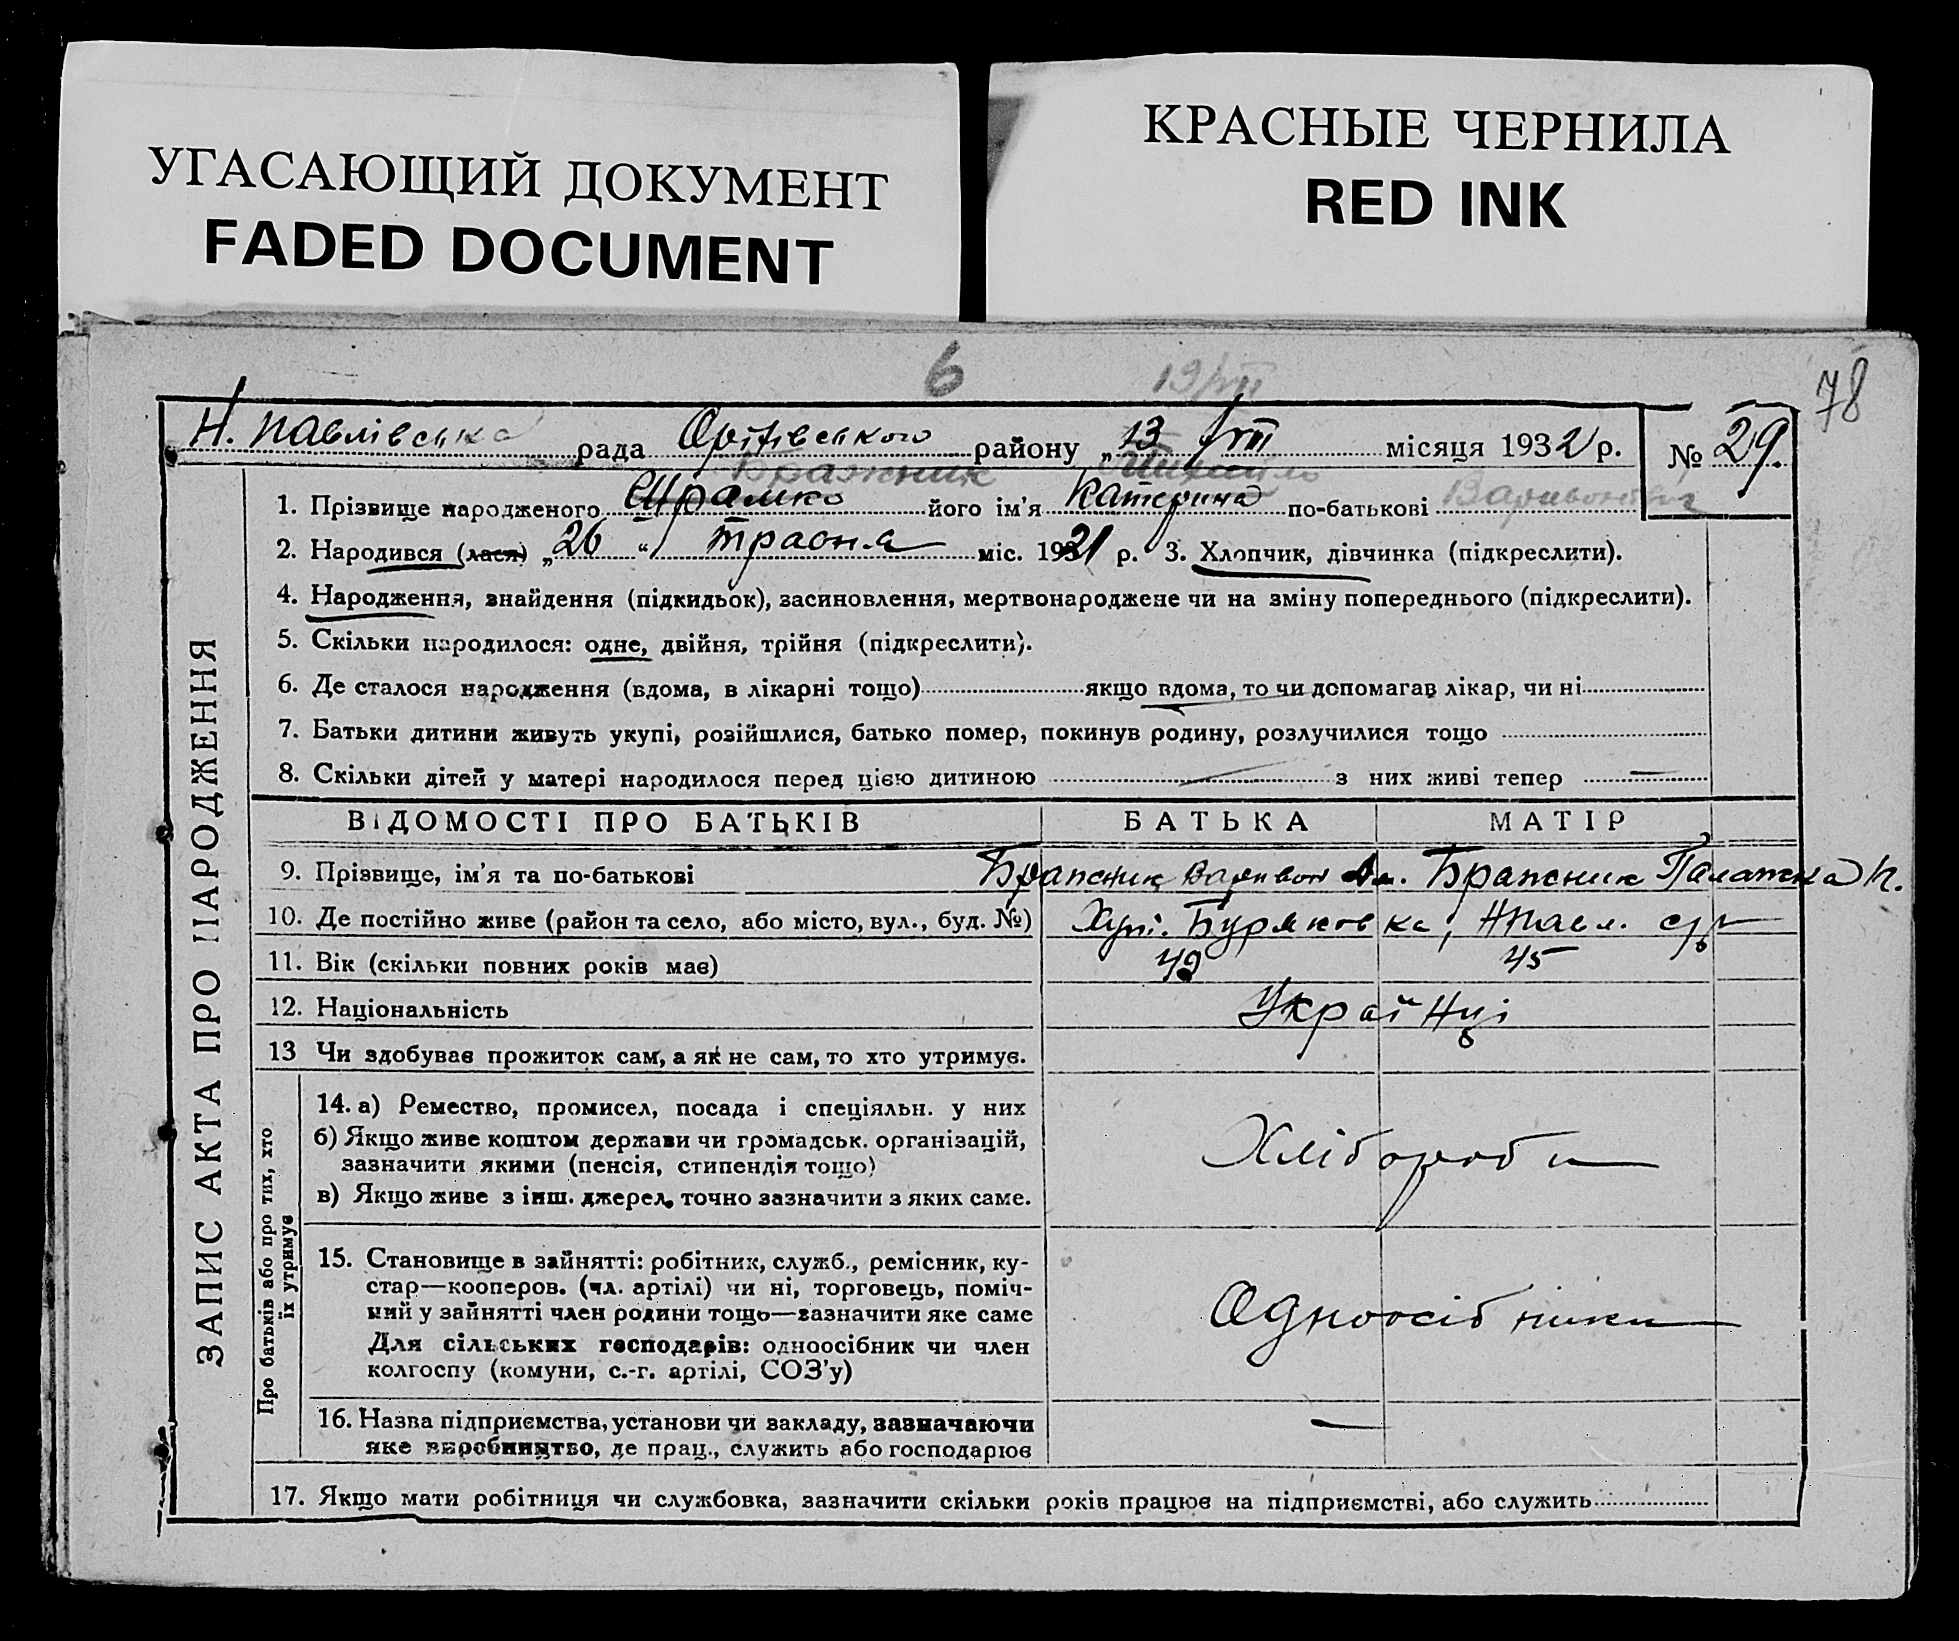 УГАСАЮЩИЙ ДОКУМЕНТ
FADED DOCUMENT
КРАСНЫЕ ЧЕРНИЛА
RED INK
6
13/VII
78
Н. Павлівська рада Оріхівського району „13 VII місяця 1932 р.
№ 29.
Бражник
1. Прізвище народженого Шрамко його ім'я Катерина по-батькові
2. Народився (лася) „26 “ травня міс. 1921 р. 3. Хлопчик, дівчинка (підкреслити).
4. Народження, знайдення (підкидьок), засиновлення, мертвонароджене чи на зміну попереднього (підкреслити).
5. Скільки народилося: одне, двійня, трійня (підкреслити).
6. Де сталося народження (вдома, в лікарні тощо) якщо вдома, то чи допомагав лікар, чи ні
7. Батьки дитини живуть укупі, розійшлися, батько помер, покинув родину, розлучилися тощо
8. Скільки дітей у матері народилося перед цією дитиною — з них живі тепер —
ЗАПИС АКТА ПРО НАРОДЖЕННЯ
ВІДОМОСТІ ПРО БАТЬКІВ БАТЬКА МАТІР
9. Прізвище, ім'я та по-батькові Бражник Варивон Бражник Палажка
10. Де постійно живе (район та село, або місто, вул., буд. №) Хут. Буряковка, НПавл. с/р
11. Вік (скільки повних років має) 49 45
12. Національність Українці
13 Чи здобуває прожиток сам, а як не сам, то хто утримує.
Про батьків або про тих, хто
їх утримує
14. а) Ремество, промисел, посада і спеціяльн. у них
б) Якщо живе коштом держави чи громадськ. організацій,
зазначити якими (пенсія, стипендія тощо)
в) Якщо живе з інш. джерел, точно зазначити з яких саме.
Хлібороби
15. Становище в зайнятті: робітник, служб., ремісник, ку-
стар—кооперов. (чл. артілі) чи ні, торговець, поміч-
ний у зайнятті член родини тощо—зазначити яке саме
Для сільських господарів: одноосібник чи член
колгоспу (комуни, с.-г. артілі, СОЗ'у)
Одноосібники
16. Назва підприємства, установи чи закладу, зазначаючи
яке виробництво, де прац., служить або господарює
—
17. Якщо мати робітниця чи службовка, зазначити скільки років працює на підприємстві, або служить